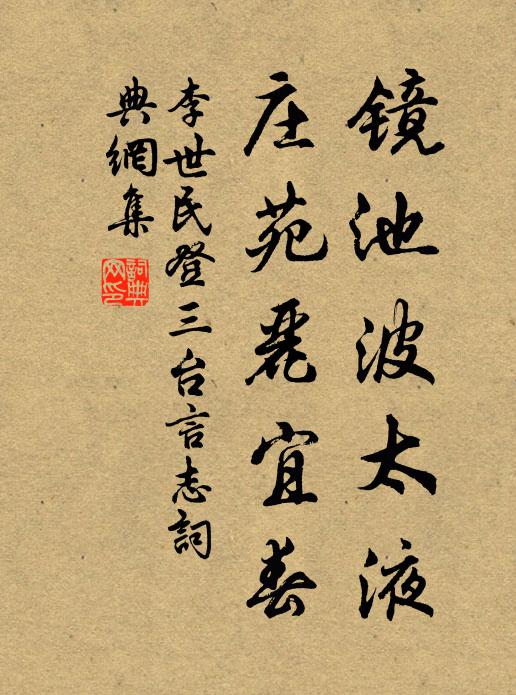 镜池波太液
庄苑丽宜春
李世民登三台言志詞
典網集
詞典网印